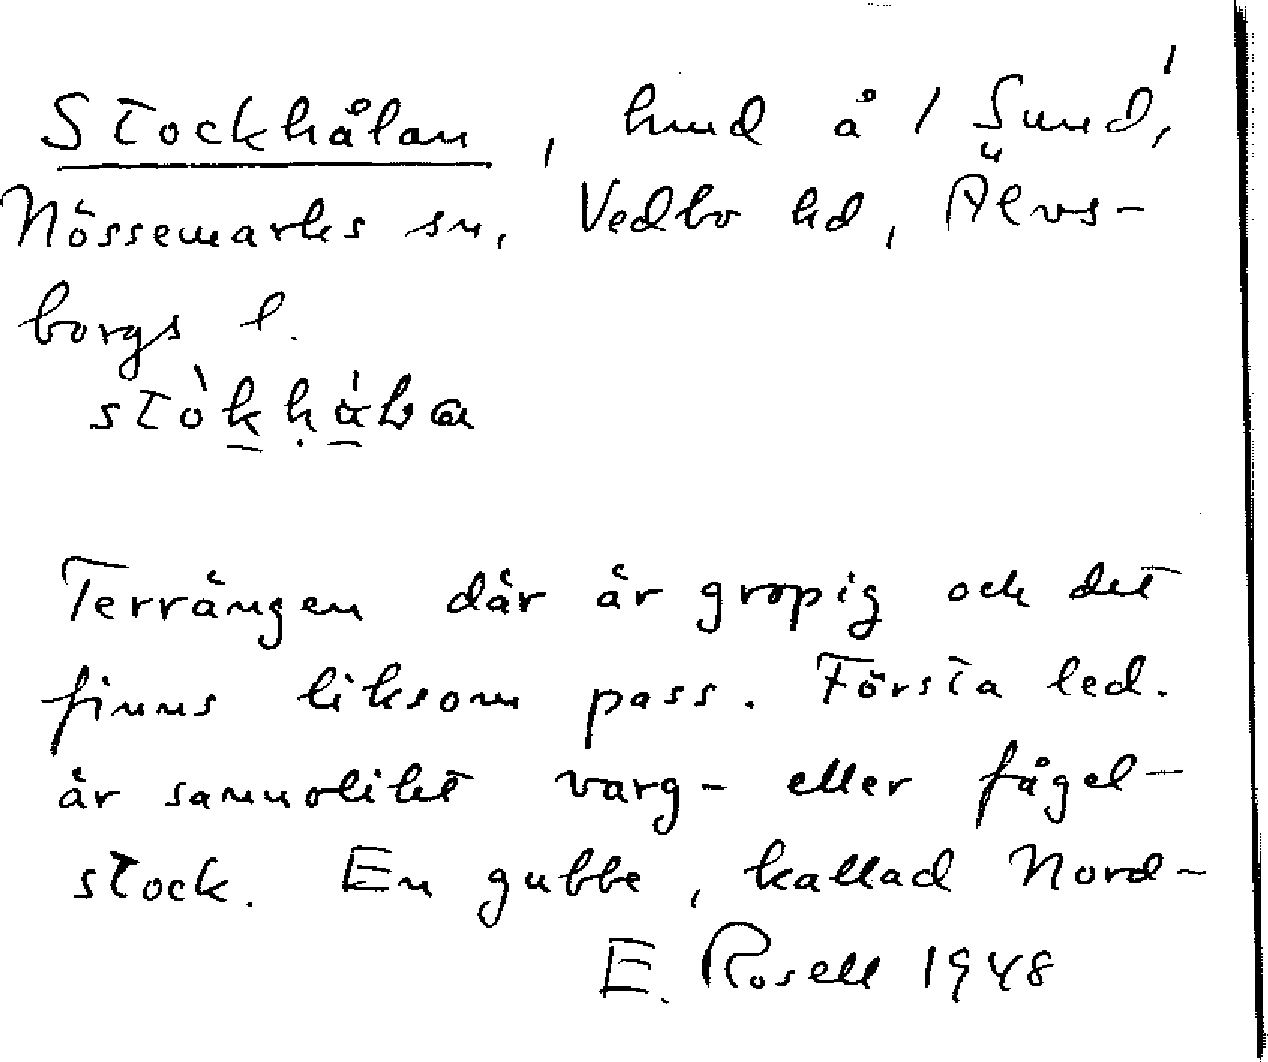 Stockhålan, hmd å 1 Sund,
Nössemarks sn, Vedbo hd, Älvs-
borgs l.
Terrängen där är gropig och det
finns liksom pass. Första led.
är sannolikt varg- eller fågel-
stock. En gubbe, kallad Nord-
E. Rosell 1948